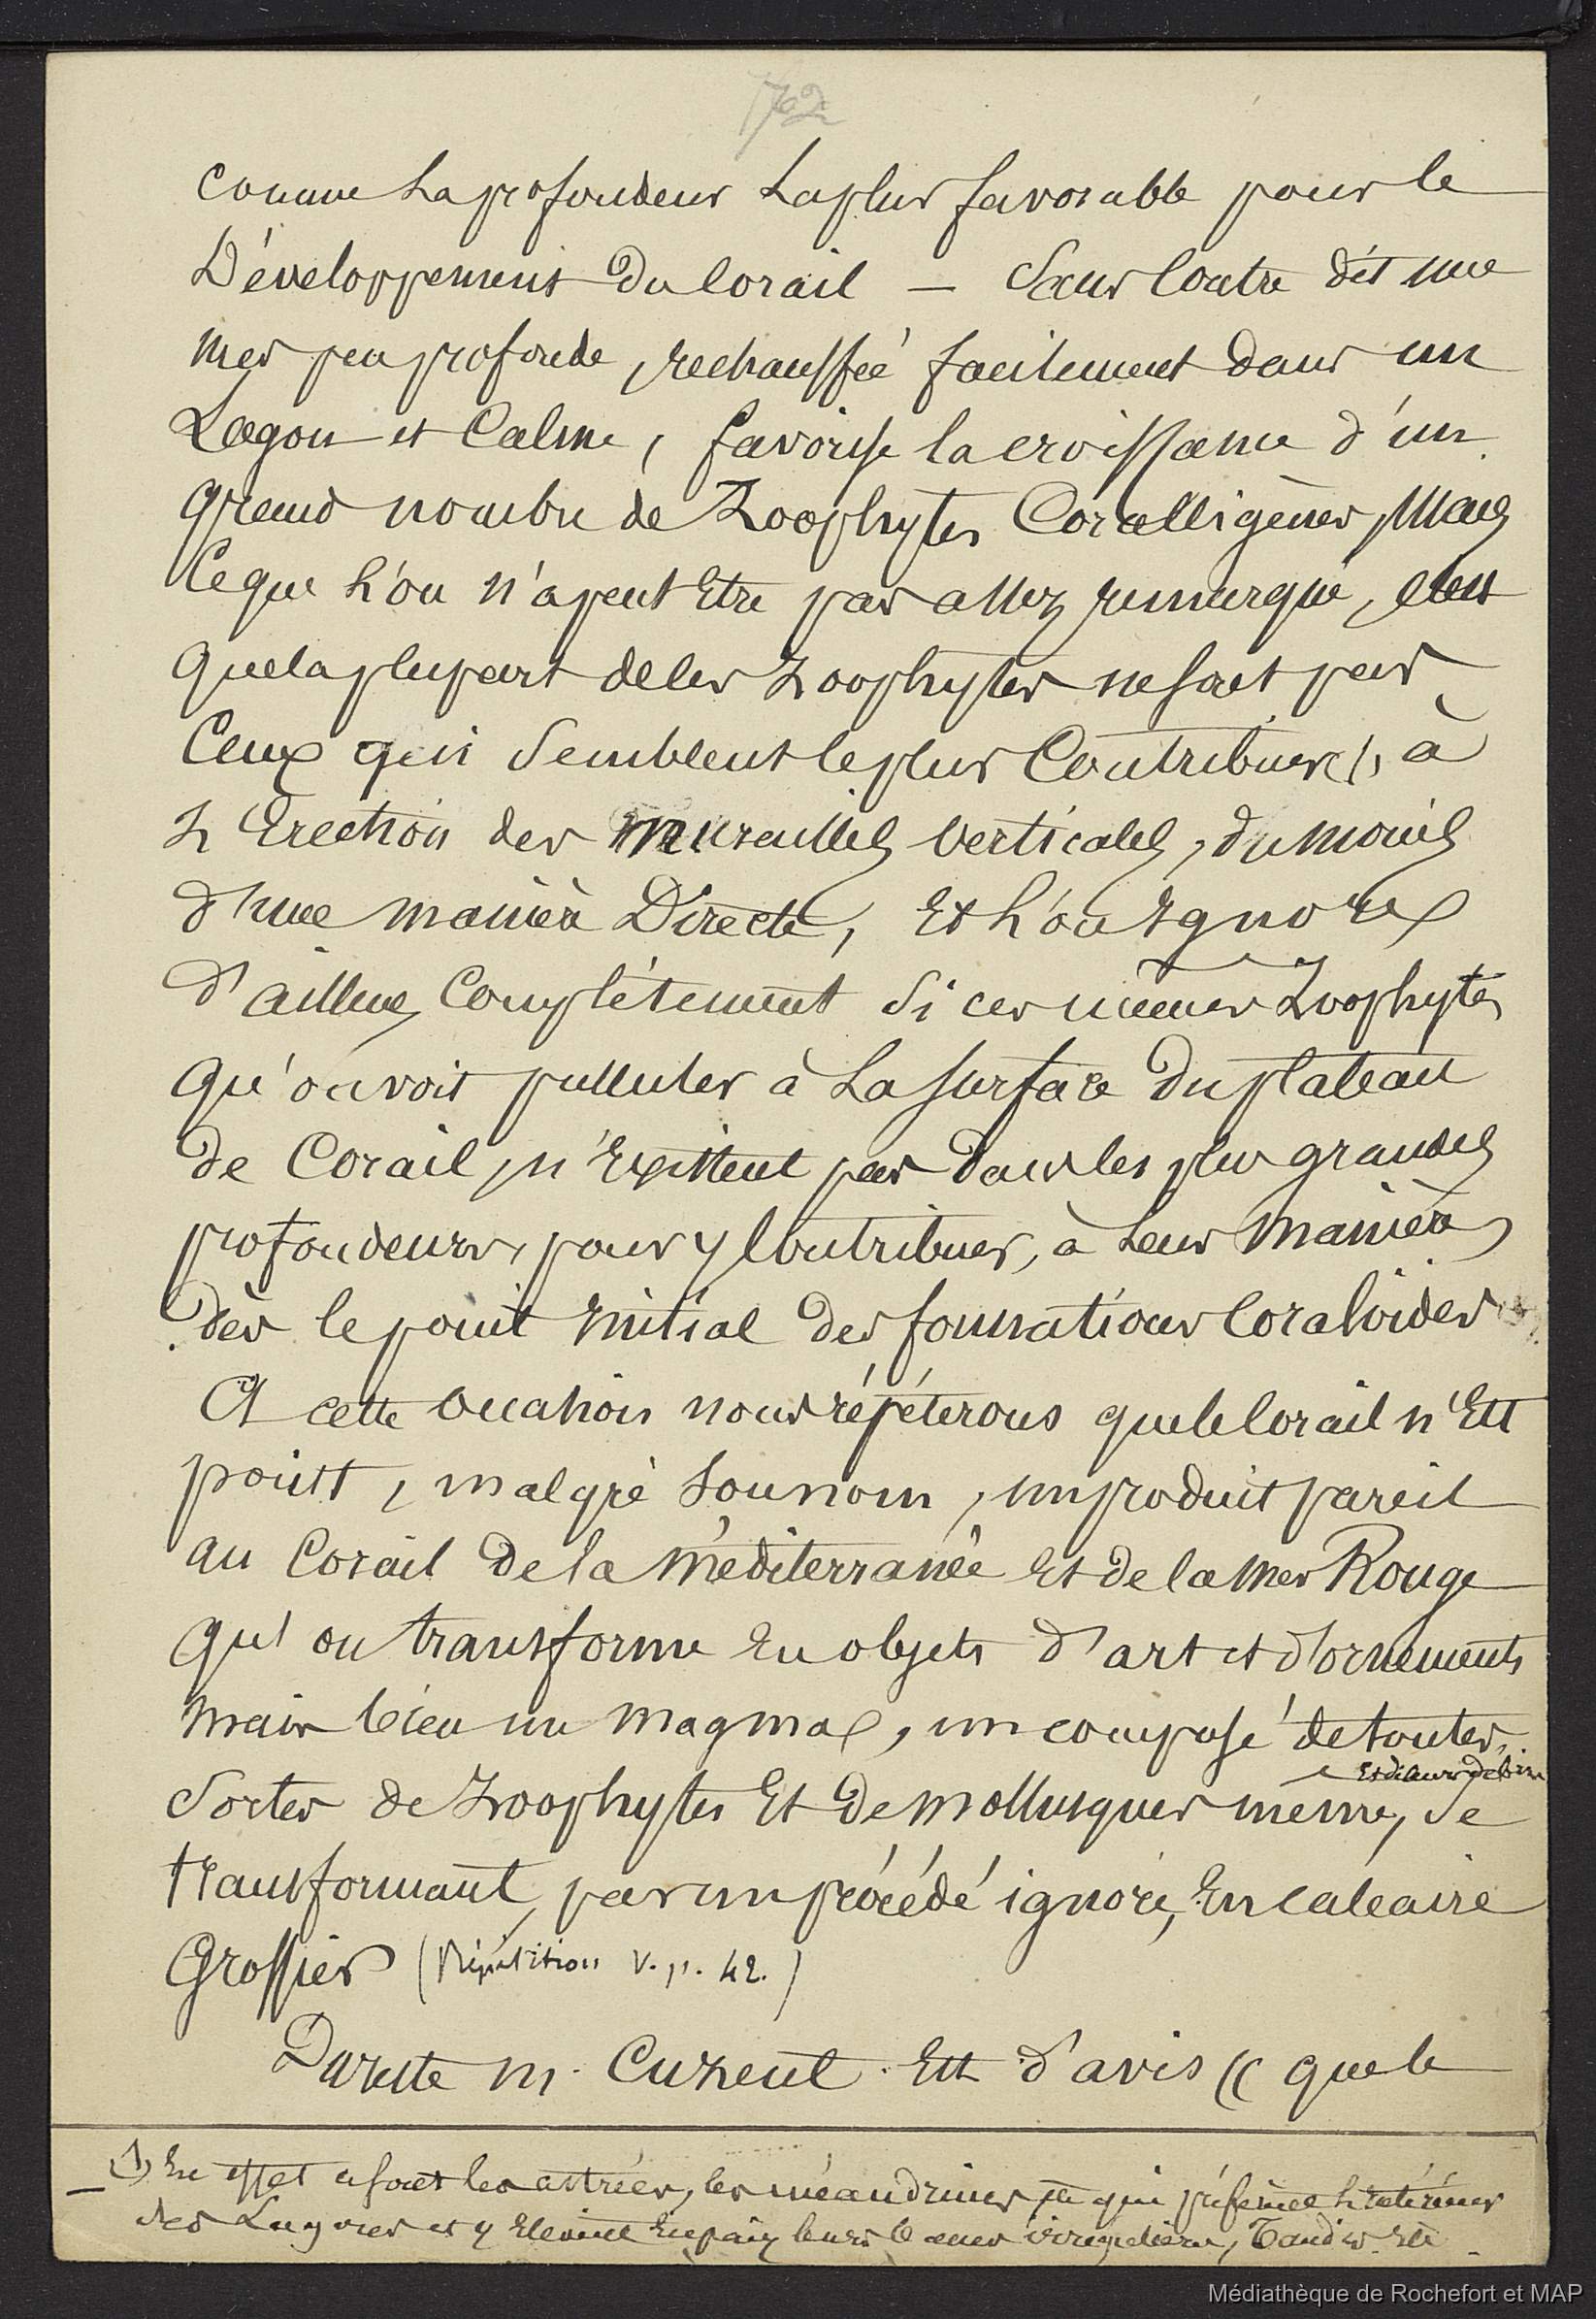 72
comme La profondeur La plus favorable pour le
Développement Du Corail — Sans Contre dit une
mer peu profonde, rechauffée facilement dans un
Lagon et Calme, favorise la croissance d'un
grand nombre de Zoophytes Coralligènes, Mais
Ce que L'on n'a peut Etre pas assez remarqué, c'est
que la plupart de Ces Zoophytes ne sont pas
Ceux qui Semblent le plus Contribuer (1) à
L'Erection des murailles verticales, du moins
d'une manière Directe, Et L'on Ignore
d'ailleurs Complétement Si ces mêmes Zoophytes
qu'on voit pulluler à La surface Du plateau
de Corail, n'Existent pas dans les plus grandes
profondeurs, pour y Contribuer, à Leur Manière
dès le point Initial des formations Coraloïdes
A cette Occasion nous répéterons que le Corail n'Est
point, malgré Son nom, un produit pareil
au Corail de la Méditerranée Et de la Mer Rouge
qu'on transforme En objets d'art et d'ornements
mais bien un magma, un composé de toutes
Et de leurs débris
Sortes de Zoophytes Et De Mollusques meme, Se
transformant, par un procédé ignoré, En calcaire
Grossier (Répétition V. p. 42.)
Du reste M. Cuzent Est d'avis (( que le
(1) En effet ce sont les astrées, les méandrines, qui préfèrent
des Lagunes et y Elèvent En paix leurs irrégulières, Tandis
Médiathèque de Rochefort et MAP